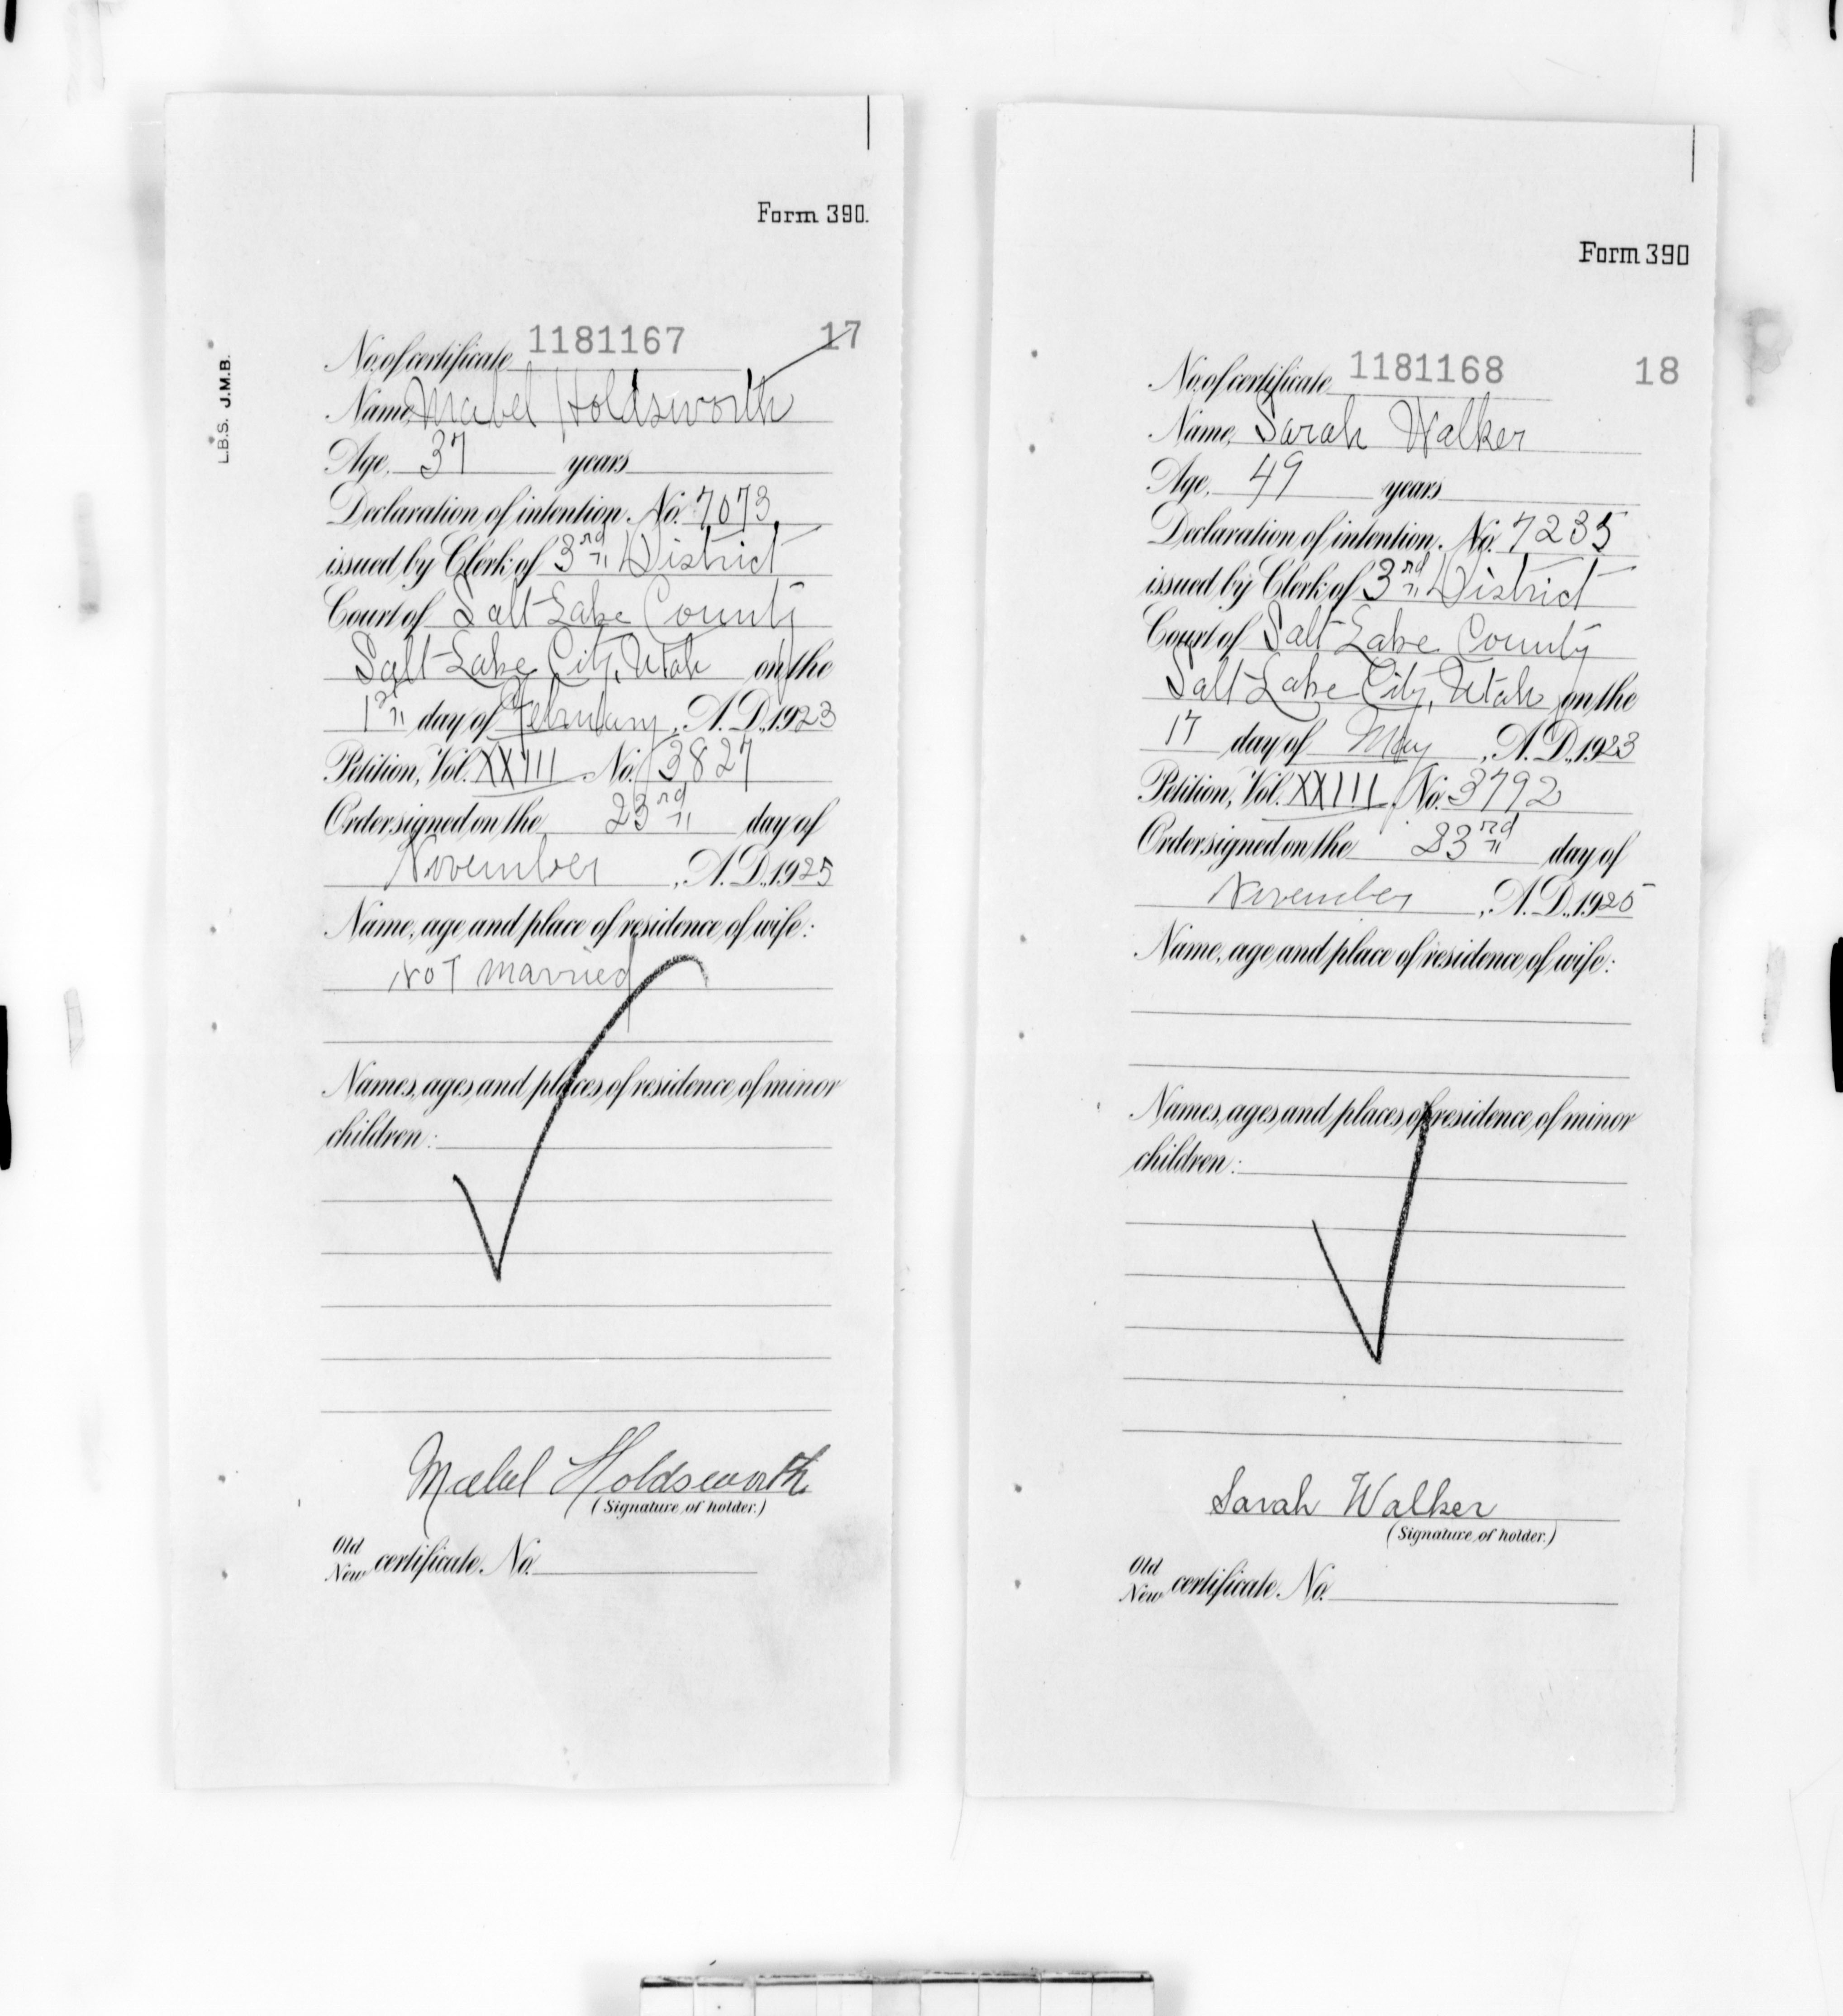 Form 390.
L.B.S. J.M.B.
No. of certificate 1181167 17
Name, Mabel Holdsworth
Age, 37 years
Declaration of intention, No. 7073
issued by Clerk of 3rd District
Court of Salt Lake County
Salt Lake City, Utah on the
1st day of February, A.D., 1923
Petition, Vol. XXIII No. 3827
Order signed on the 23rd day of
November, A.D., 1925
Name, age, and place of residence of wife:
Not Married
Names, ages, and places of residence of minor
children:
Mabel Holdsworth
(Signature of holder.)
Old
New certificate No.
Form 390
No. of certificate 1181168 18
Name, Sarah Walker
Age, 49 years
Declaration of intention, No. 7235
issued by Clerk of 3rd District
Court of Salt Lake County
Salt Lake City, Utah on the
17 day of May, A.D., 1923
Petition, Vol. XXIII, No. 3792
Order signed on the 23rd day of
November, A.D., 1925
Name, age, and place of residence of wife:
Names, ages, and places of residence of minor
children:
Sarah Walker
(Signature of holder.)
Old
New certificate No.